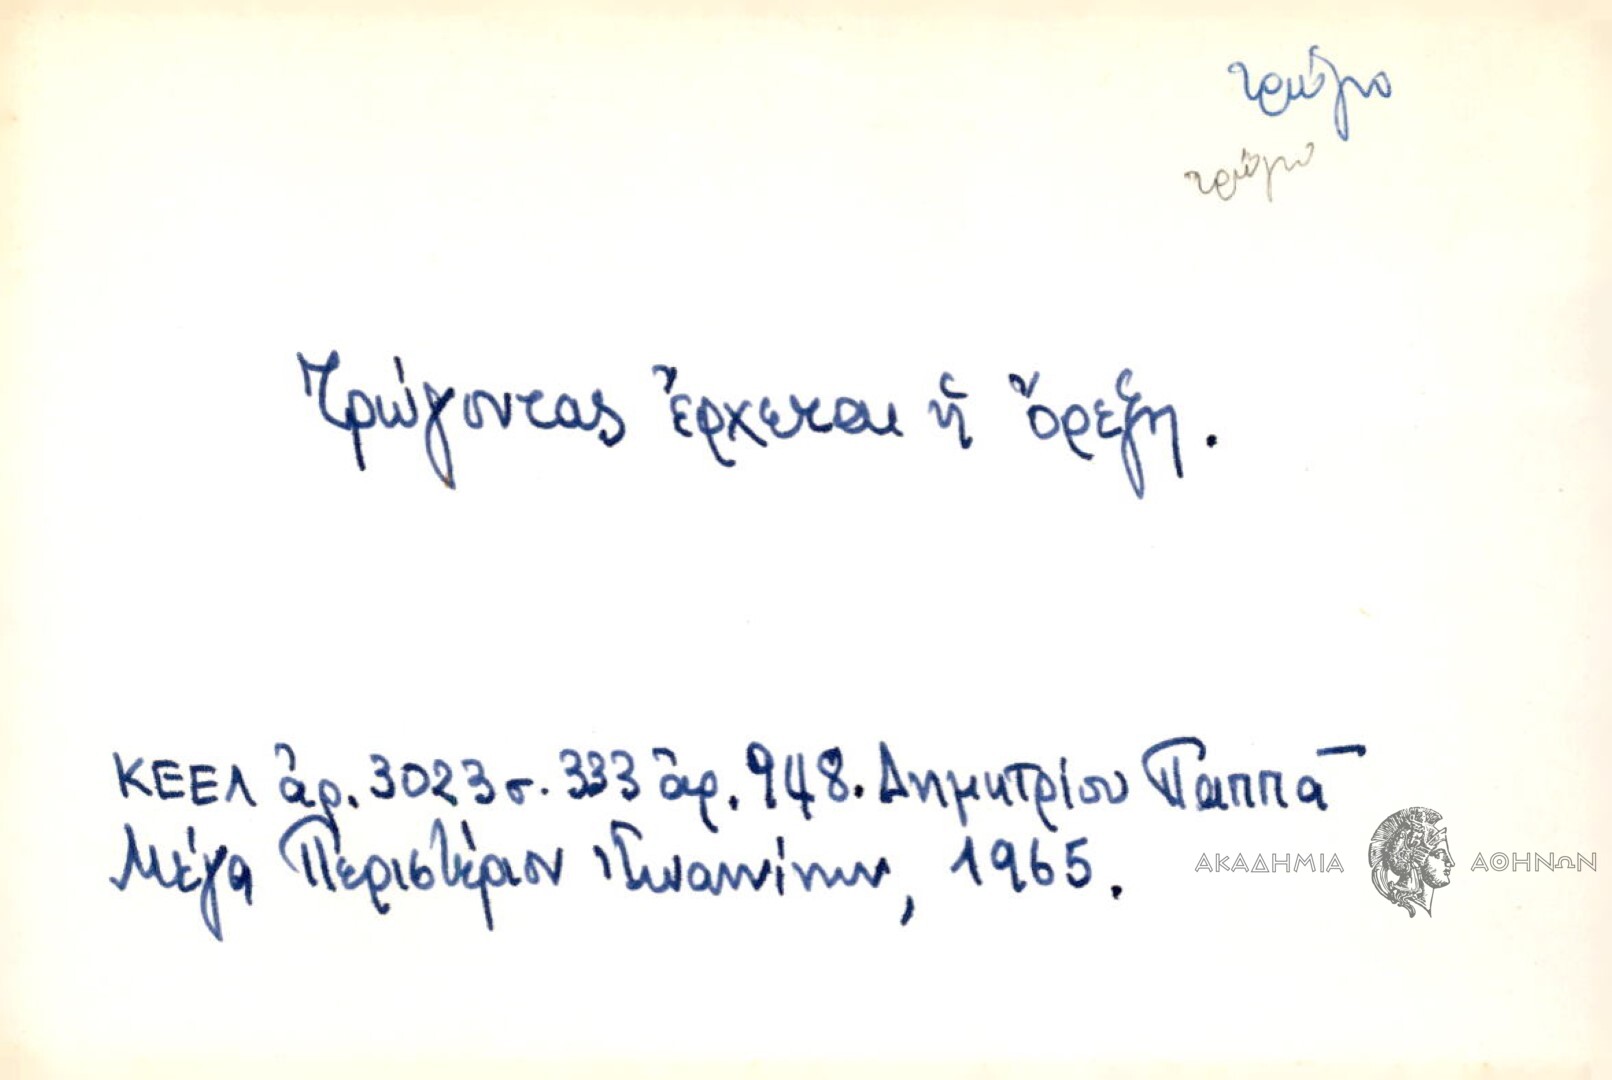 τρώγω
τρώγω
Τρώγοντας ἔρχεται ἡ ὄρεξη.
ΚΕΕΛ ἀρ. 3023 σ. 333 ἀρ. 948. Δημητρίου Παππᾶ
Μέγα Περιστέριον Ἰωαννίνων, 1965.
ΑΚΑΔΗΜΙΑ ΑΘΗΝΩΝ